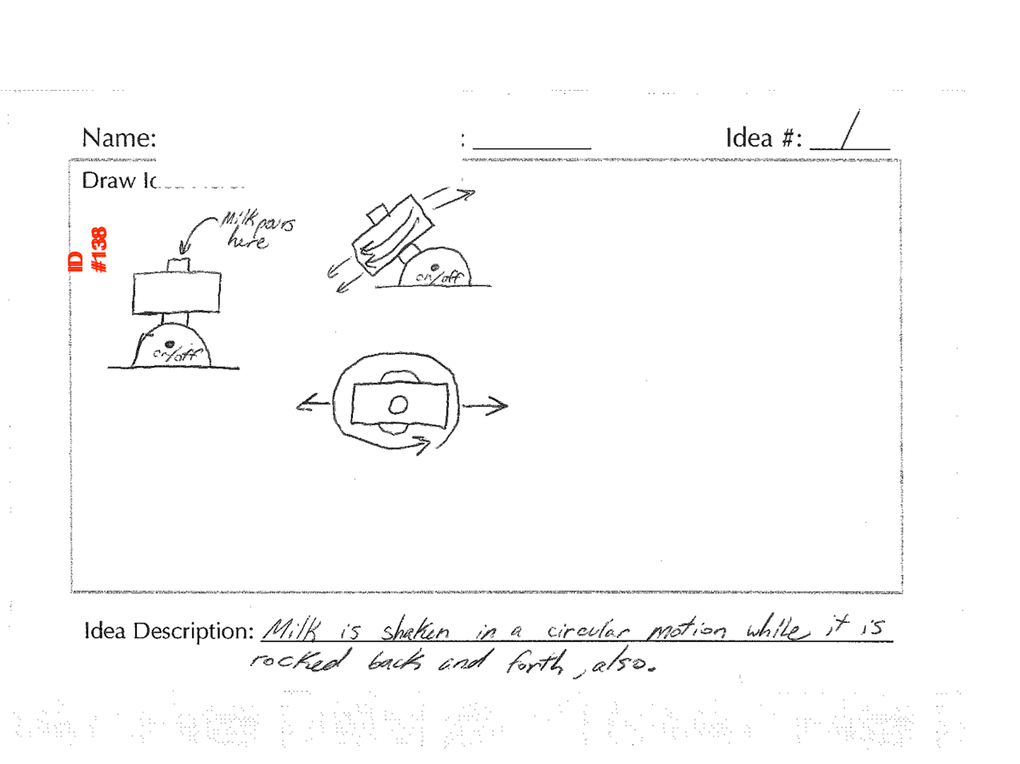 Name:
: Idea #: 1
Draw Id
ID #138
Milk pours
here
on/off
on/off
Idea Description: Milk is shaken in a circular motion while it is
rocked back and forth, also.